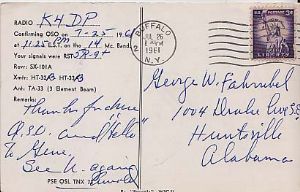 RADIO K4DP
Confirming QSO on 7-25 196
at 11:25 PM E.S.T. on the 14 Mc. Band.
Your signals were RST 5R-9+
Rcvr: SX-101A
Xmtr: HT-32 HT-33
Ant: TA-33 (3 Element Beam)
Remarks:
Thanks for
QSO and "Hello"
to Gene,
See U again
PSE QSL TNX
BUFFALO
2
JUL 26
PM
1961
N.Y.
3¢
George W. Fahrnbel
1004 Drake Ave. S.E.
Huntsville
Alabama